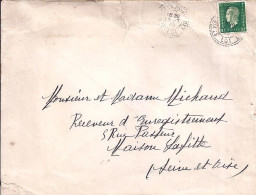 Monsieur et Madame Michaud
Receveur d'Enregistrement
5 Rue Pasteur
Maison Lafitte
(Seine et Oise)